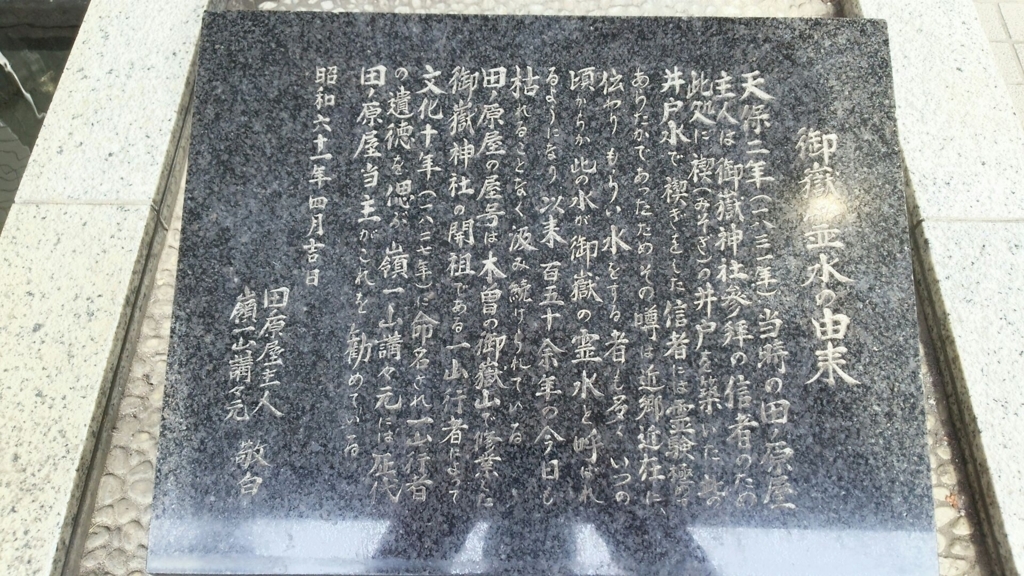 御嶽霊水の由来
天保二年(一八三一年)当時の田ノ原屋
主人は御嶽神社参拝の信者のため
此処に禊(みそぎ)の井戸を築いた
井戸水で禊ぎをした信者には霊験
あらたかであったためその噂は近郷近在に
伝わり もらい水をする者も多く いつの
頃からか 此の水が御嶽の霊水と呼ばれ
るようになり 以来 百五十余年の今日も
枯れることなく 汲み続けられている
田ノ原屋の屋号は木曽の御嶽山で修業した
御嶽神社の開祖である一山行者によって
文化十年(一八一七年)に命名され 一山行者
の遺徳を偲び 嶺一山講々元には歴代
田ノ原屋当主がこれを勤めている
昭和六十一年四月吉日
田ノ原屋主人
嶺一山講々元 敬白